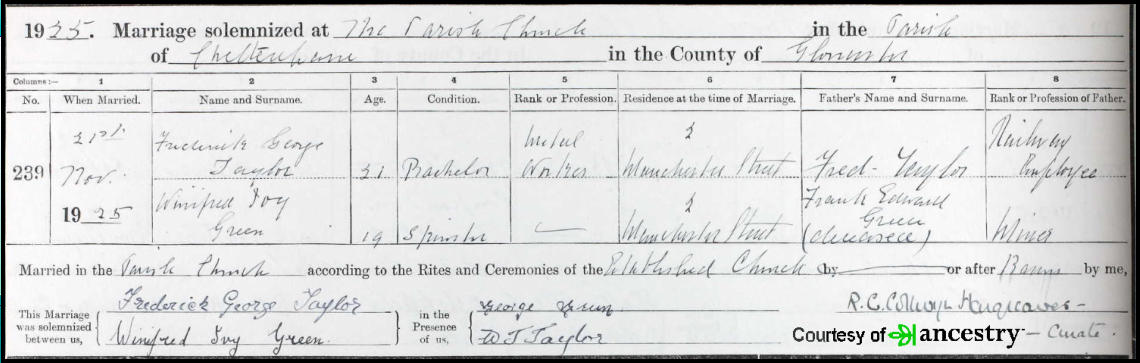 1925. Marriage solemnized at The Parish Church in the Parish
of Cheltenham in the County of Gloucester
Columns:— 1 2 3 4 5 6 7 8
No. When Married. Name and Surname. Age. Condition. Rank or Profession. Residence at the time of Marriage. Father's Name and Surname. Rank or Profession of Father.
21st Frederick George Metal 2 Railway
239 Nov. Taylor 21 Bachelor Worker Manchester Street Fred Taylor Employee
1925 Winifred Ivy 2 Frank Edward
Green 19 Spinster — Manchester Street Green Miner
(deceased)
Married in the Parish Church according to the Rites and Ceremonies of the Established Church by — or after Banns by me,
This Marriage was solemnized between us, Frederick George Taylor in the Presence of us, George Green
Winifred Ivy Green. W J Taylor
Curate.
Courtesy of ancestry